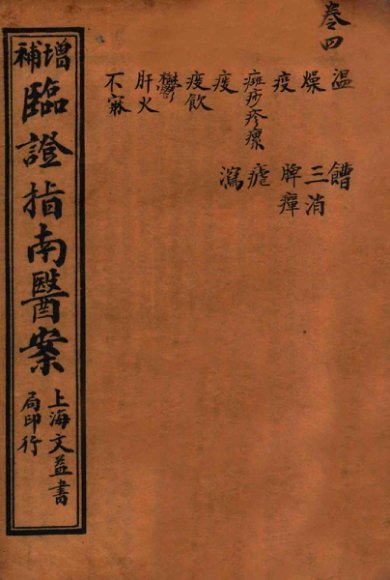 卷四
温
燥 三消
疫 脾癉
癍痧疹瘰 瘧
痰 瀉
痰飲
鬱
肝火
不寐
增補
臨證指南醫案
上海文益書
局印行